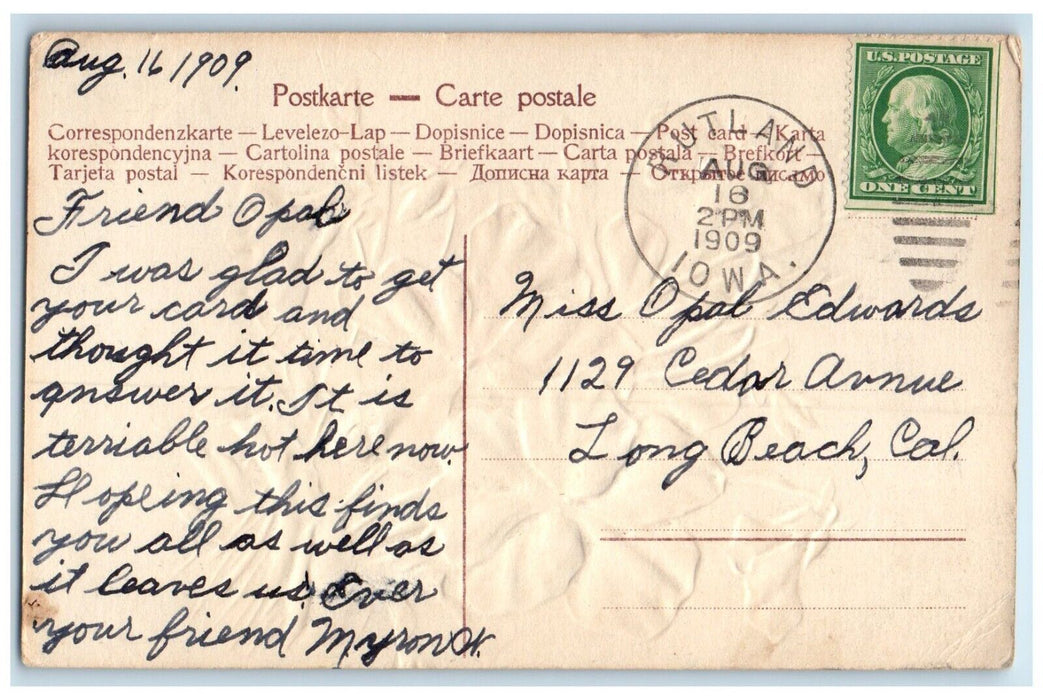 Aug. 16 1909.
U.S. POSTAGE
ONE CENT
Postkarte — Carte postale
Correspondenzkarte — Levelezo-Lap — Dopisnice — Dopisnica — Post card — Karta
korespondencyjna — Cartolina postale — Briefkaart — Carta postala — Brefkort —
Tarjeta postal — Korespondenčni listek — Дописна карта — Открытое письмо
RUTLAND
AUG
16
2 PM
1909
IOWA.
Friend Opal
I was glad to get
your card and
thought it time to
answer it. It is
terriable hot here now.
Hopeing this finds
you all as well as
it leaves us. Ever
your friend Myron W.
Miss Opal Edwards
1129 Cedar Avnue
Long Beach, Cal.